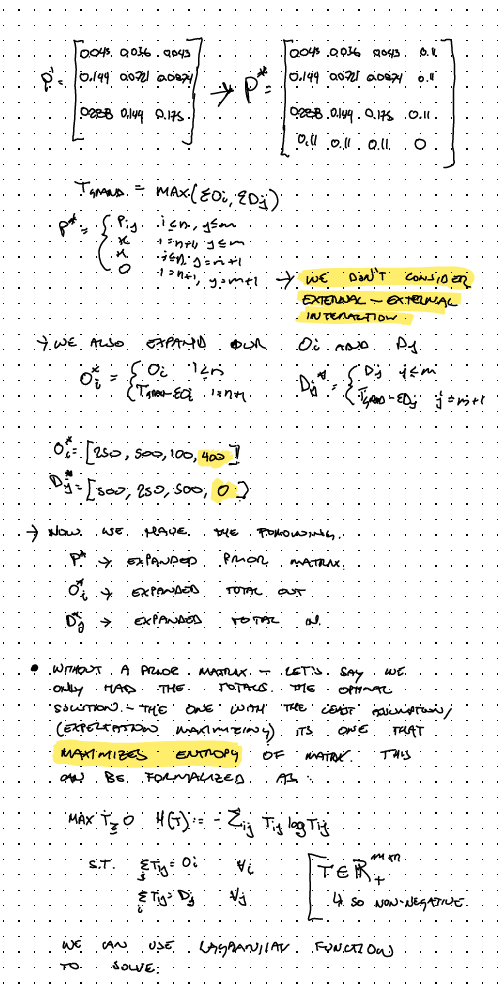 P' = [0.043 0.036 0.043 → P* = [0.043 0.036 0.043 0.11
0.149 0.072 0.0874 0.149 0.072 0.0874 0.11
0.288 0.149 0.175] 0.288 0.149 0.175 0.11
0.11 0.11 0.11 0]
T_GRAND = MAX(ΣOi, ΣDj)
P* = { Pij i≤n, j≤m
x i=n+1, j≤m
x i≤n, j=m+1
0 i=n+1, j=m+1 → WE DON'T CONSIDER
EXTERNAL - EXTERNAL
INTERACTION
→ WE ALSO EXPAND OUR Oi AND Dj
Oi* = { Oi i≤n Dj* = { Dj j≤m
T_GRAND-ΣOi i=n+1 T_GRAND-ΣDj j=m+1
Oi* = [250, 500, 100, 400]
Dj* = [500, 250, 500, 0]
→ NOW WE HAVE THE FOLLOWING.
P* → EXPANDED PRIOR MATRIX
Oi* → EXPANDED TOTAL OUT
Dj* → EXPANDED TOTAL IN.
• WITHOUT A PRIOR MATRIX - LET'S SAY WE
ONLY HAD THE TOTALS THE OPTIMAL
SOLUTION - THE ONE WITH THE LEAST ASSUMPTION/
(EXPECTATION MAXIMIZING) ITS ONE THAT
MAXIMIZES ENTROPY OF MATRIX. THIS
CAN BE FORMALIZED AS:
MAX T≥0 H(T) := -Σij Tij log Tij
S.T. ΣjTij = Oi ∀i [T∈ℝ+^mxn
ΣiTij = Dj ∀j ↳ SO NON-NEGATIVE
WE CAN USE LAGRANGIAN FUNCTION
TO SOLVE: